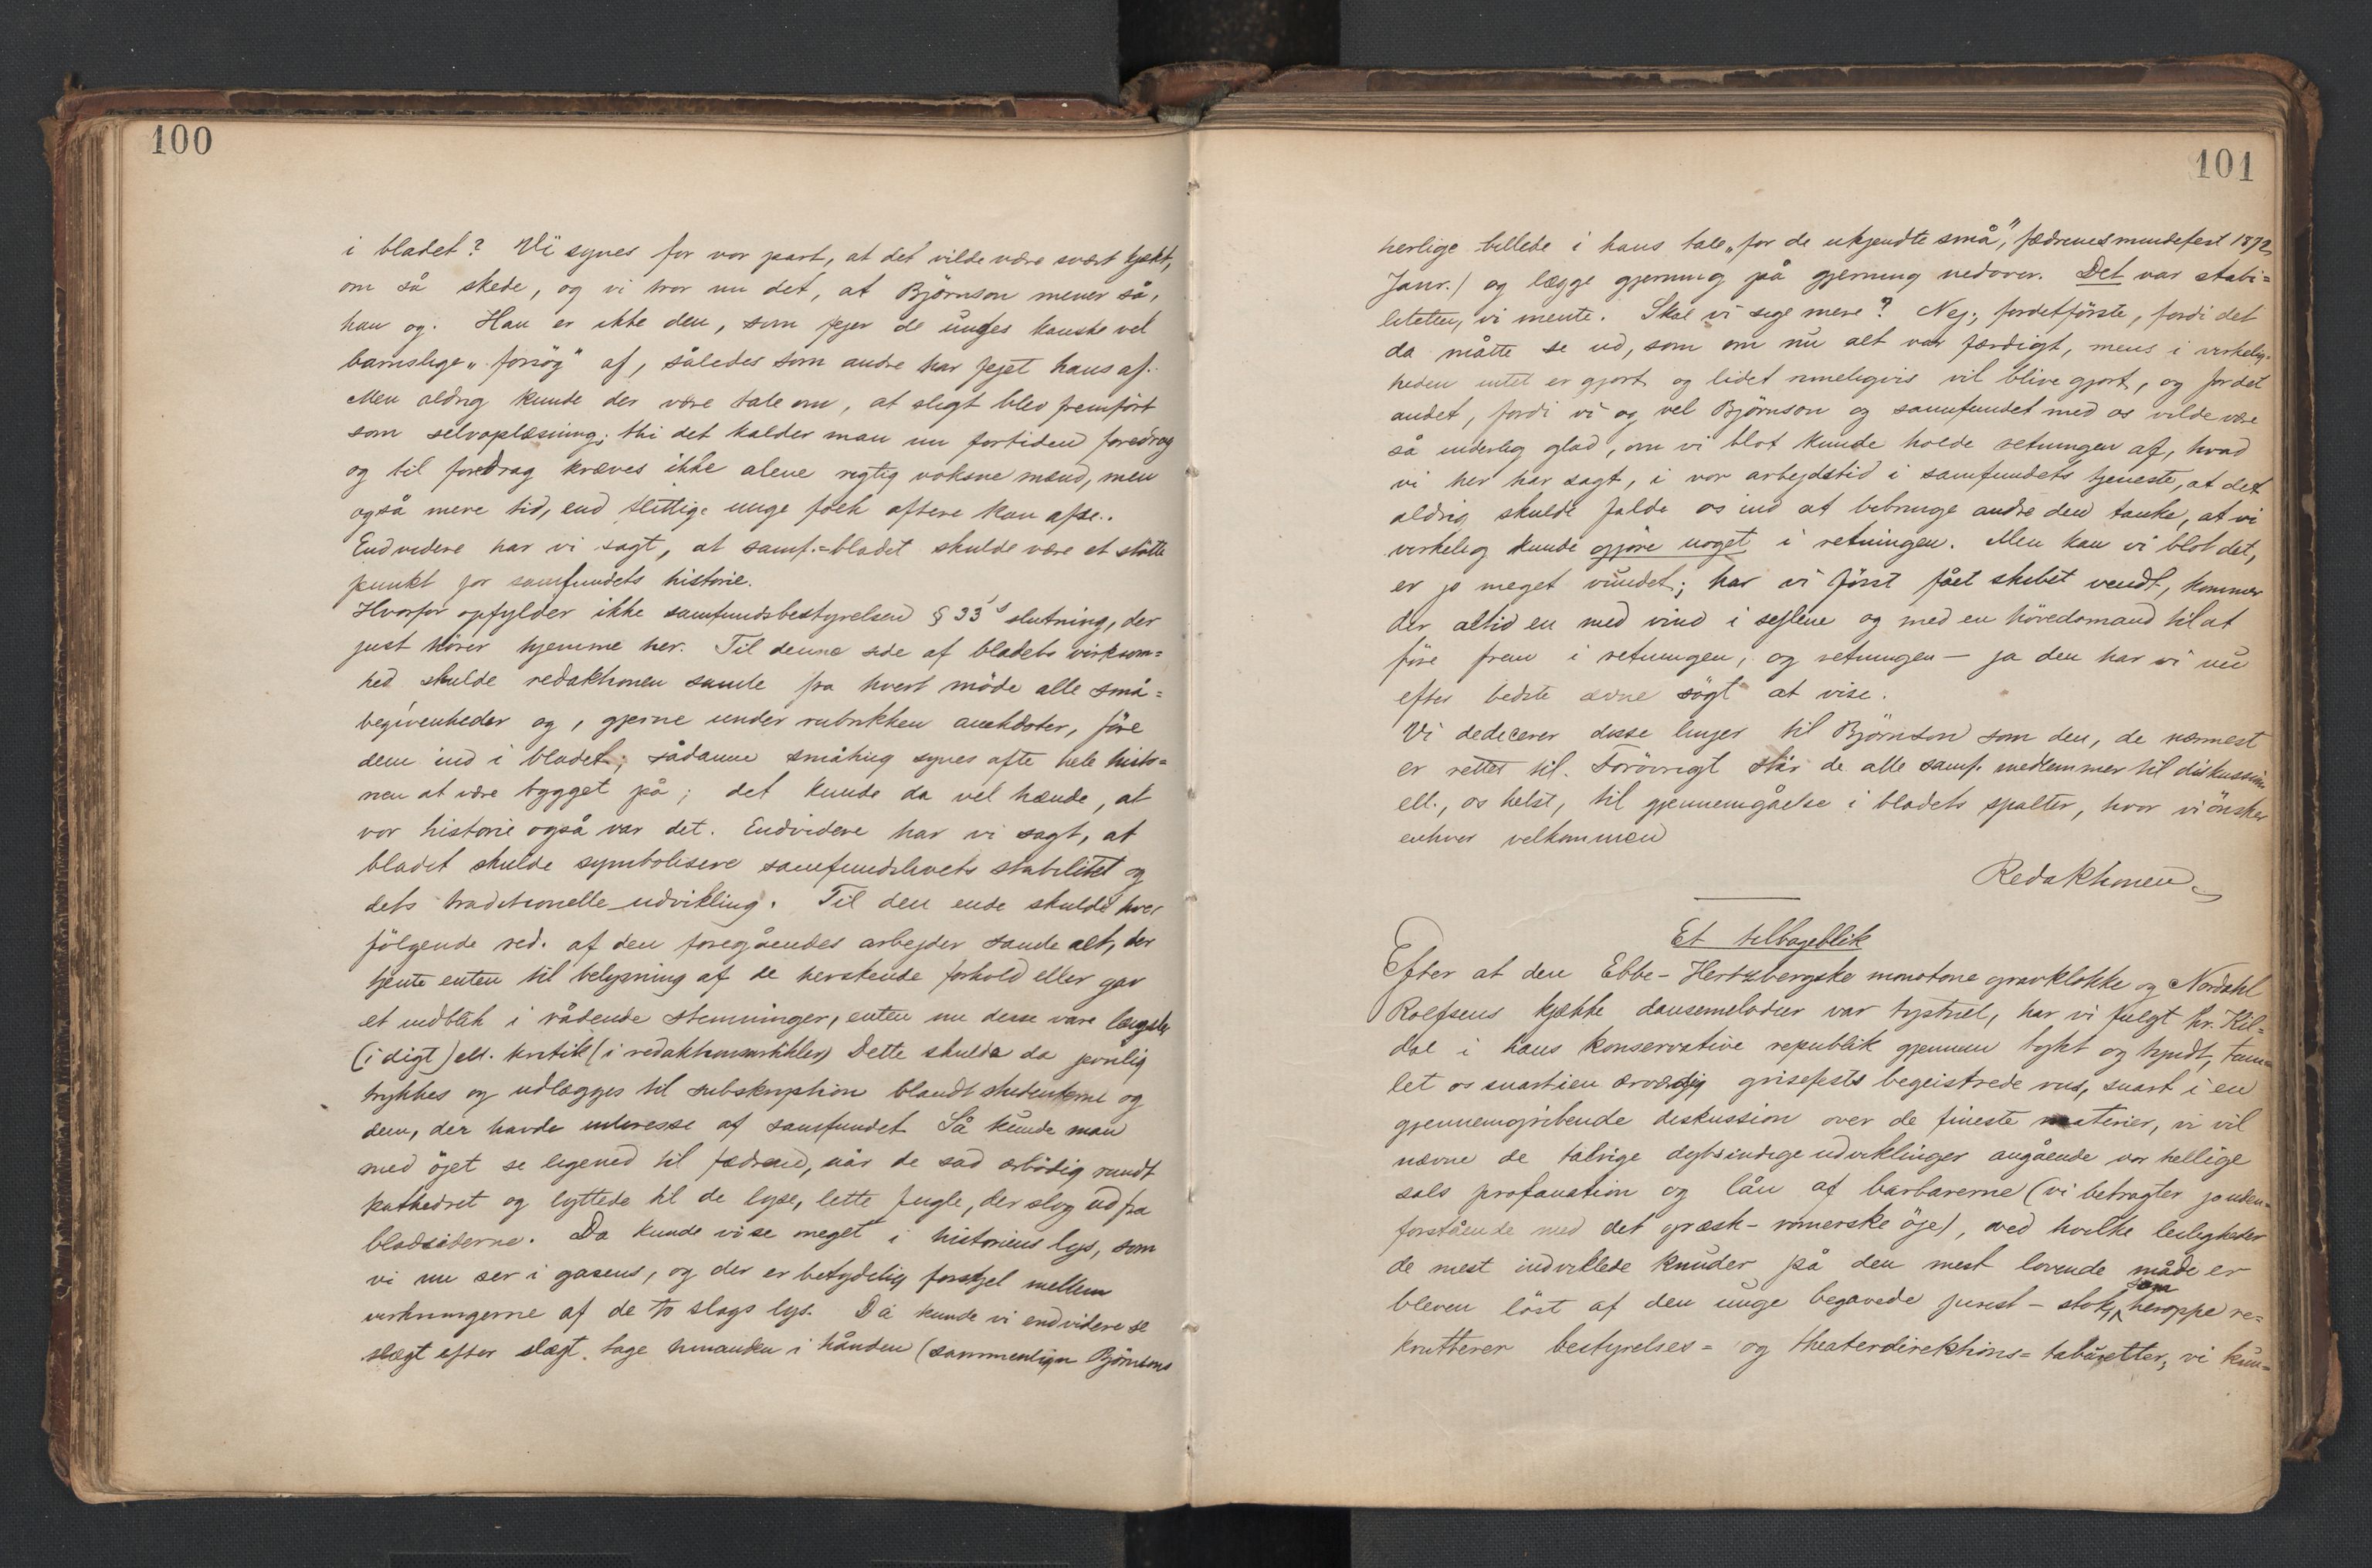 100
i bladet? Vi synes for vor part, at det vilde være svært kjækt,
om så skede, og vi tror nu det, at Björnson mener så,
han og. Han er ikke den, som fejer de unges kanske vel
barnslige „forsög" af, således som andre har fejet hans af.
Men aldrig kunde der være tale om, at sligt blev fremfört
som selvoplæsning; thi det kalder man nu fortiden foredrag
og til foredrag kræves ikke alene rigtig voksne mænd, men
også mere tid, end flittige unge folk oftere kan afse.
Endvidere har vi sagt, at samf.=bladet skulde være et stötte
punkt for samfundets historie.
Hvorfor opfylder ikke samfundsbestyrelsen § 33's slutning, der
just hörer hjemme her. Til denne side af bladets virksom=
hed skulde redaktionen samle fra hvert möde alle små=
begivenheder og, gjerne under rubrikken anekdoter, före
dem ind i bladet; sådanne småting synes ofte hele histo=
rien at være bygget på; det kunde da vel hænde, at
vor historie også var det. Endvidere har vi sagt, at
bladet skulde symbolisere samfundslivets stabilitet og
dets traditionelle udvikling. Til den ende skulde hver
fölgende red. af den foregåendes arbejder samle alt, der
tjente enten til belysning af de herskende forhold eller gav
et indblik i rådende stemninger, enten nu disse vare
(i digt) ell. kritik (i redaktionsartikler) Dette skulde da jevnlig
trykkes og udlægges til subskription blandt studenterne og
dem, der havde interesse af samfundet. Så kunde man
med öjet se ligened til fædrene, når de sad ærbödig rundt
kathedret og lyttede til de lyse, lette fugle, der slog ud fra
bladsiderne. Da kunde vi se meget i historiens lys, som
vi nu ser i gasens, og der er betydelig forskjel mellem
virkningerne af de to slags lys. Da kunde vi endvidere se
slægt efter slægt tage hinanden i hånden (sammenlign Björnsons
101
herlige billede i hans tale „for de ukjendte små", fædrenes mindefest 1872,
Janr.) og lægge gjerning på gjerning nedover. Det var stabi=
liteten, vi mente. Skal vi sige mere? Nej; fordetförste, fordi det
da måtte se ud, som om nu alt var færdigt, mens i virkelig-
heden intet er gjort og lidet rimeligvis vil blive gjort, og for det
andet, fordi vi og vel Björnson og samfundet med os vilde være
så inderlig glad, om vi blot kunde holde retningen af, hvad
vi her har sagt, i vor arbejdstid i samfundets tjeneste, at det
aldrig skulde falde os ind at bibringe andre den tanke, at vi
virkelig kunde gjöre noget i retningen. Men kan vi blot det,
er jo meget vundet; har vi först fået skibet vendt, kommer
der altid en med vind i sejlene og med en hövedsmand til at
före frem i retningen, og retningen – ja den har vi nu
efter bedste ævne sögt at vise.
Vi dedicerer disse linjer til Björnson som den, de nærmest
er rettet til. Forövrigt står de alle samf. medlemmer til diskussion
ell., os helst, til gjennemgåelse i bladets spalter, hvor vi önsker
enhver velkommen
Redaktionen.
Et tilbageblik
Efter at den Ebbe-Hertzbergske monotone gravklokke og Nordahl
Rolfsens kjække dansemelodier var hystnet, har vi fulgt hr. Kil=
dal i hans konservative republik gjennem tykt og tyndt, tum=
let os snart i en ærværdig grisefests begeistrede rus, snart i en
gjennemgribende diskussion over de fineste materier, vi vil
nævne de talrige dybsindige udviklinger angående vor hellige
sals profanation og lån af barbarerne (vi betragter jo uden=
forstående med det græsk-romerske öje), ved hvilke leiligheder
de mest indviklede knuder på den mest lovende måde er
bleven löst af den unge begavede jurist-stok, som heroppe re=
krutterer bestyrelses= og theaterdirektions= tabûretter; vi kun=